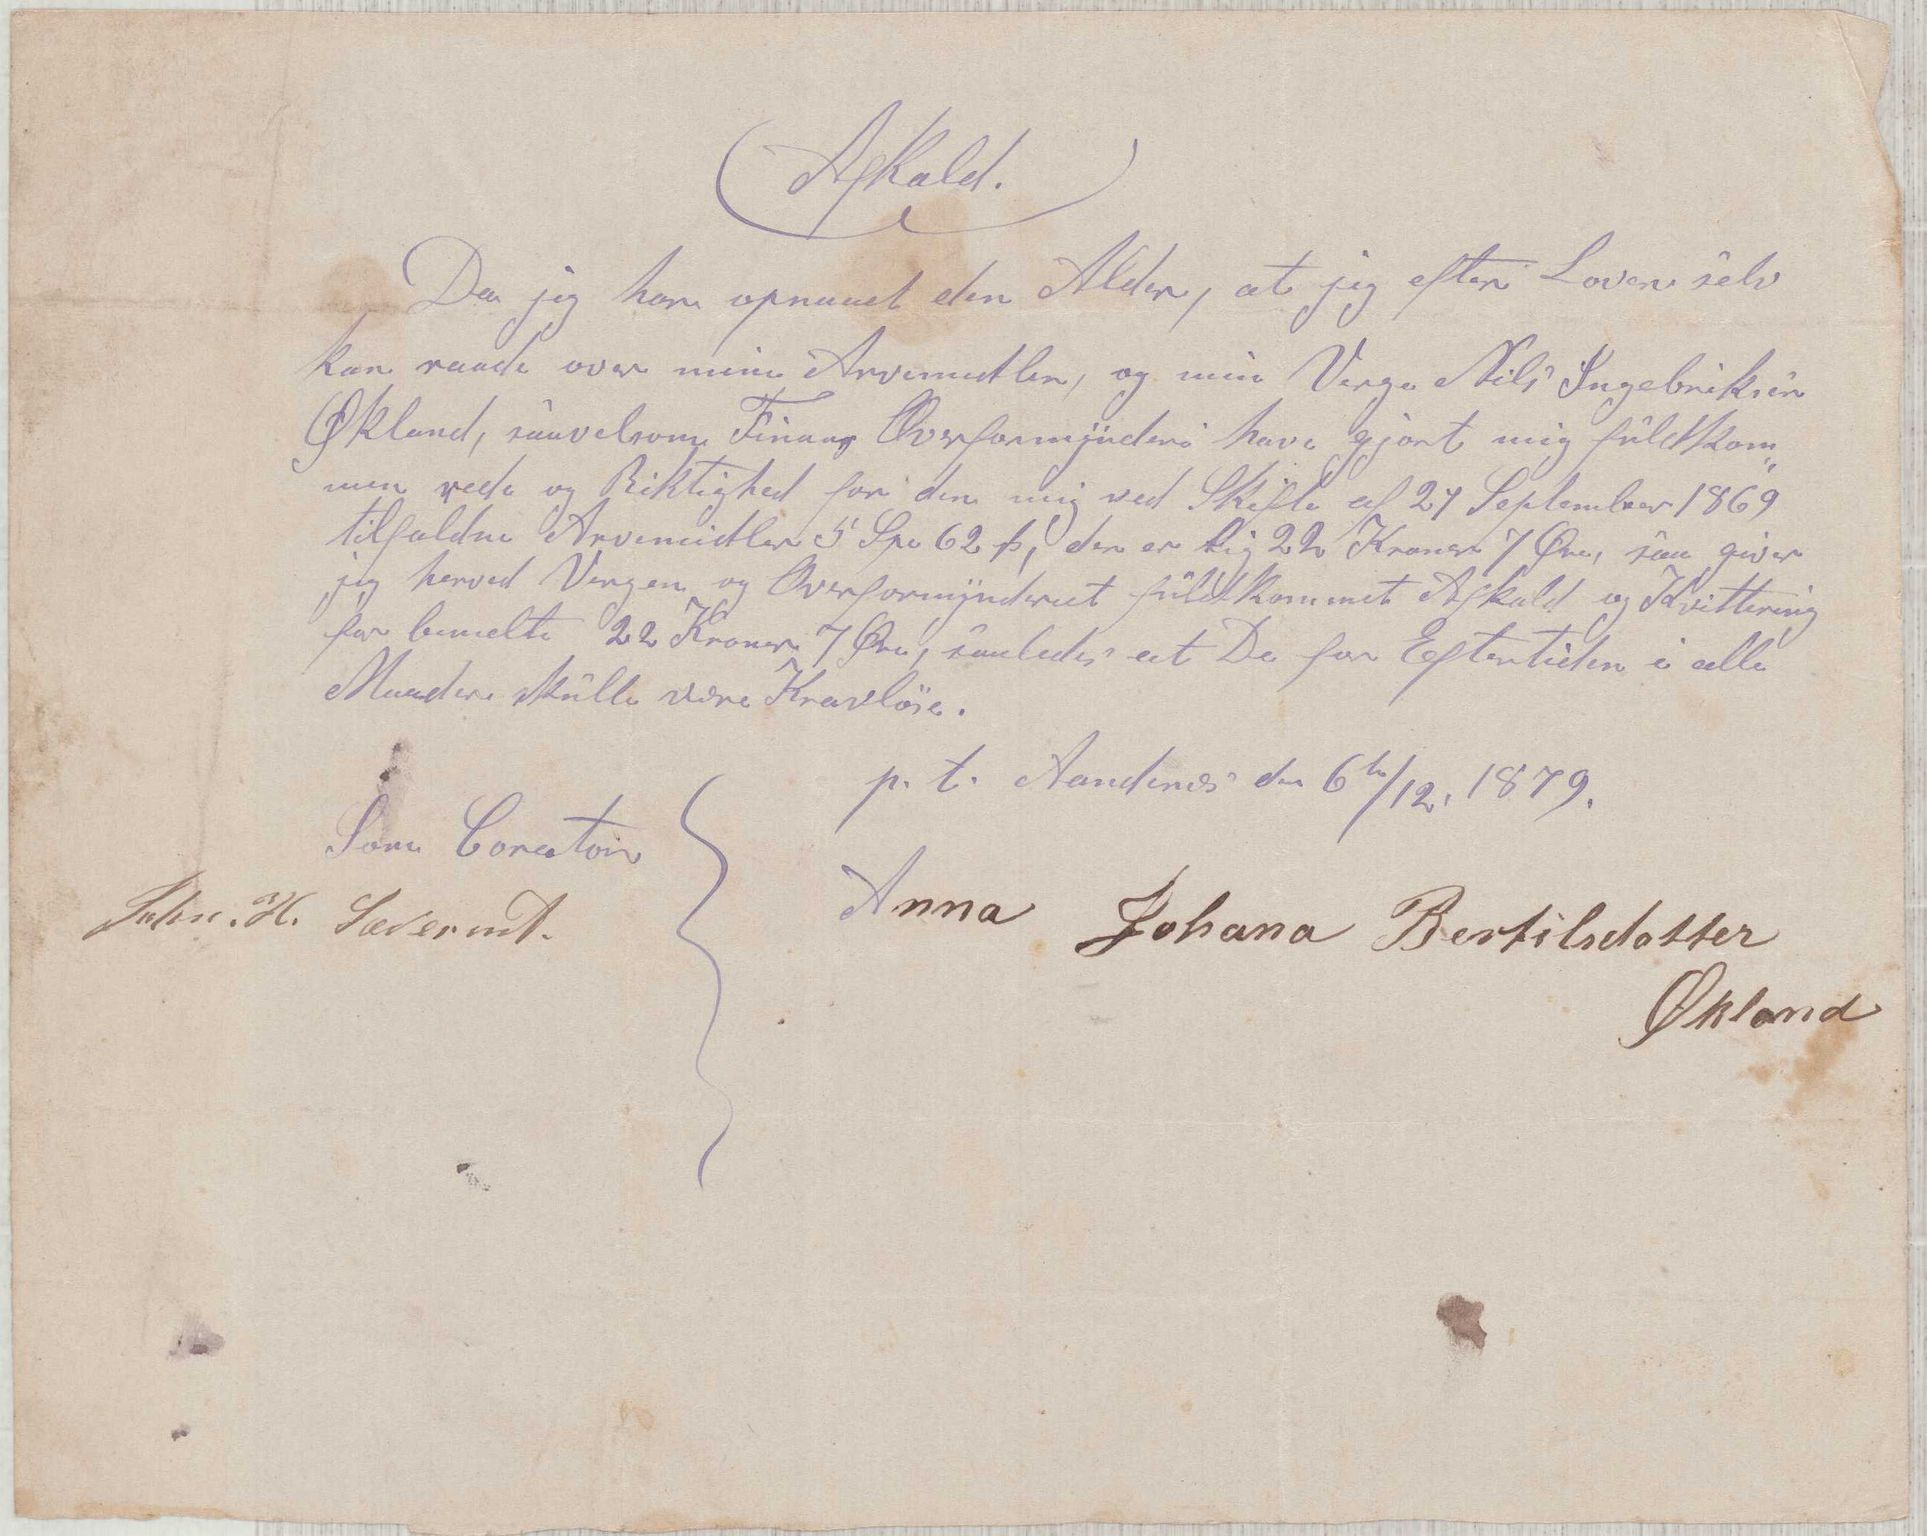 Afkald.
Da jeg har opnaaet den Alder, at jeg efter Loven selv
kan raade over mine Arvemidler, og min Verge Nils Ingebriksen
Økland, saavelsom Finaas Overformynderi have gjort mig fuldkom„
men rede og Riktighed for den mig ved Skifte af 27 September 1869
tilfaldne Arvemidler 5 Spd 62 ß, der er lig 22 Kroner 7 Øre, saa giver
jeg herved Vergen og Overformynderiet fuldkommet Afkald og Kvittering
for bemelte 22 Kroner 7 Øre, saaledes at De for Eftertiden i alle
Maader skulle være Kravløse.
p. t. den 6te/12. 1879.
Som Corator
John. H.
Anna Johana Bertilsdatter
Økland